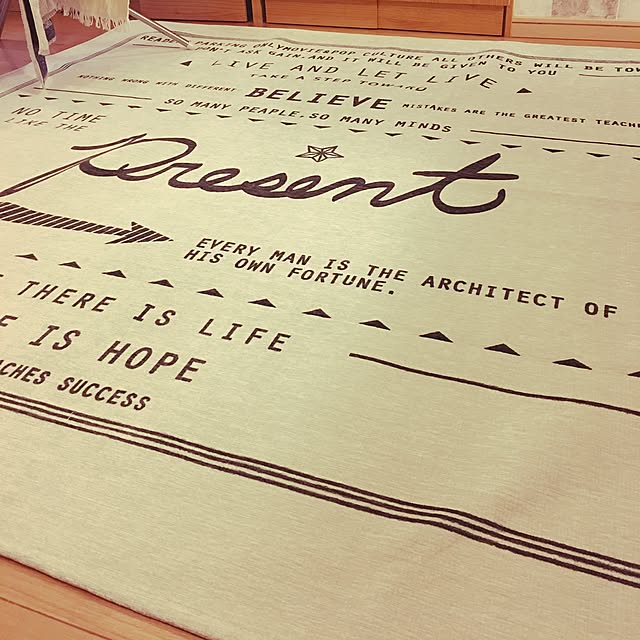 READER PARKING ONLY MOVIE&POP CULTURE ALL OTHERS WILL BE TOW
DON'T ASK GAIN.AND IT WILL BE GIVEN TO YOU
LIVE AND LET LIVE
TAKE A STEP TOWARD
NOTHING WRONG WITH DIFFERENT BELIEVE MISTAKES ARE THE GREATEST TEACHE
SO MANY PEAPLE.SO MANY MINDS
NO TIME
LIKE THE
Present
EVERY MAN IS THE ARCHITECT OF
HIS OWN FORTUNE.
THERE IS LIFE
IS HOPE
ACHES SUCCESS